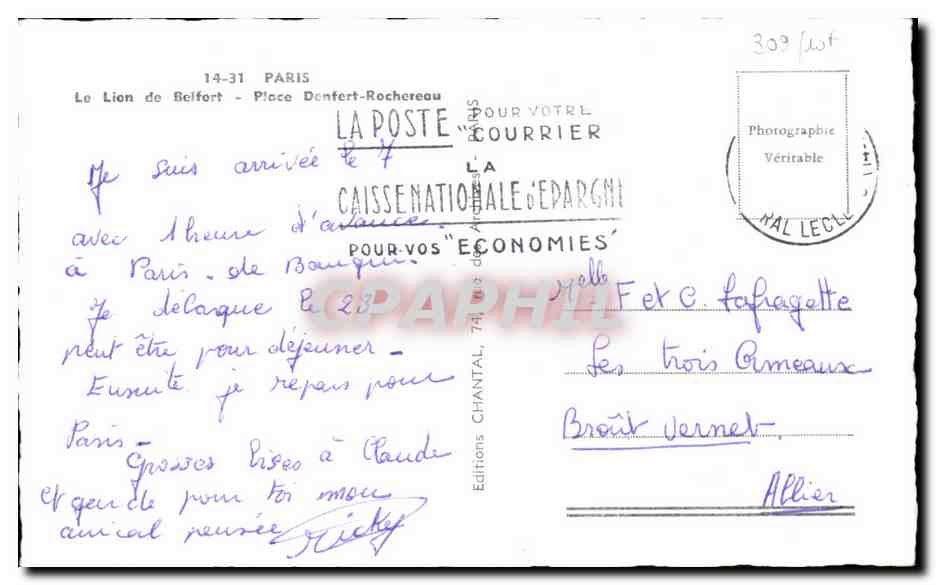 309/lot
14-31 PARIS
Le Lion de Belfort - Place Denfert-Rochereau
LA POSTE POUR VOTRE
"COURRIER
LA
CAISSE NATIONALE D'EPARGN
POUR VOS "ECONOMIES"
Photographie
Véritable
RAL LECL
Je suis arrivée le 7
avec 1 heure d'avance
à Paris - de
Je délarque le 23
peut être pour déjeuner -
Ensuite je repars pour
Paris -
Grosses bises à Claude
et garde pour toi mon
amical pensée Micky
Editions CHANTAL, 74, rue des Archives - PARIS
CPAPHIL
Melle F et C. Lafragette
Les trois Ormeaux
Broût Vernet
Allier